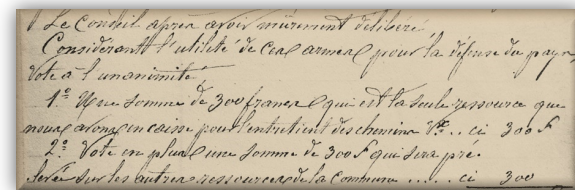 Le Conseil après avoir mûrement délibéré,
Considérant l'utilité de ces armes pour la défense du pays,
Vote à l'unanimité,
1.º Une somme de 300 francs qui est la seule ressource que
nous avons en caisse pour l'entretient des chemins Vx... ci 300 f
2.º Vote en plus une somme de 300 f qui sera pré-
levée sur les autres ressources de la Commune ..... ci 300